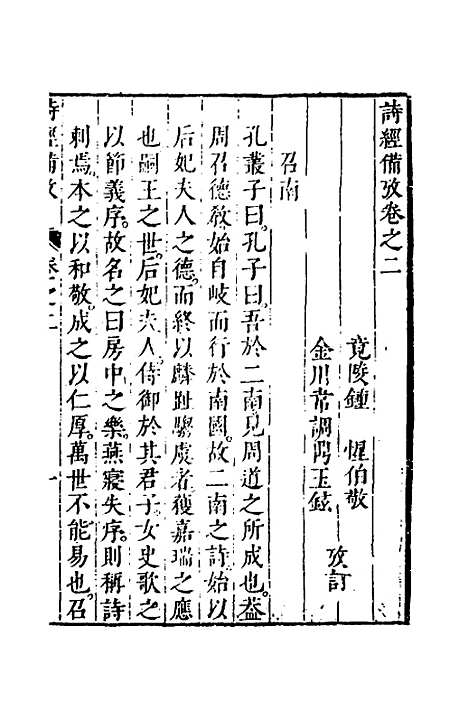 詩經備攷卷之二
竟陵鍾　惺伯敬
金川韋調鼎玉鉉
攷訂
召南
孔叢子曰。孔子曰。吾於二南見周道之所成也。葢
周召德敎始自岐而行於南國。故二南之詩。始以
后妃夫人之德。而終以麟趾騶虞者。獲嘉瑞之應
也。嗣王之世。后妃夫人。侍御於其君子。女史歌之
以節義序。故名之曰房中之樂。燕寢失序。則稱詩
刺焉。本之以和敬。成之以仁厚。萬世不能易也。召
詩經備攷
卷之二
一